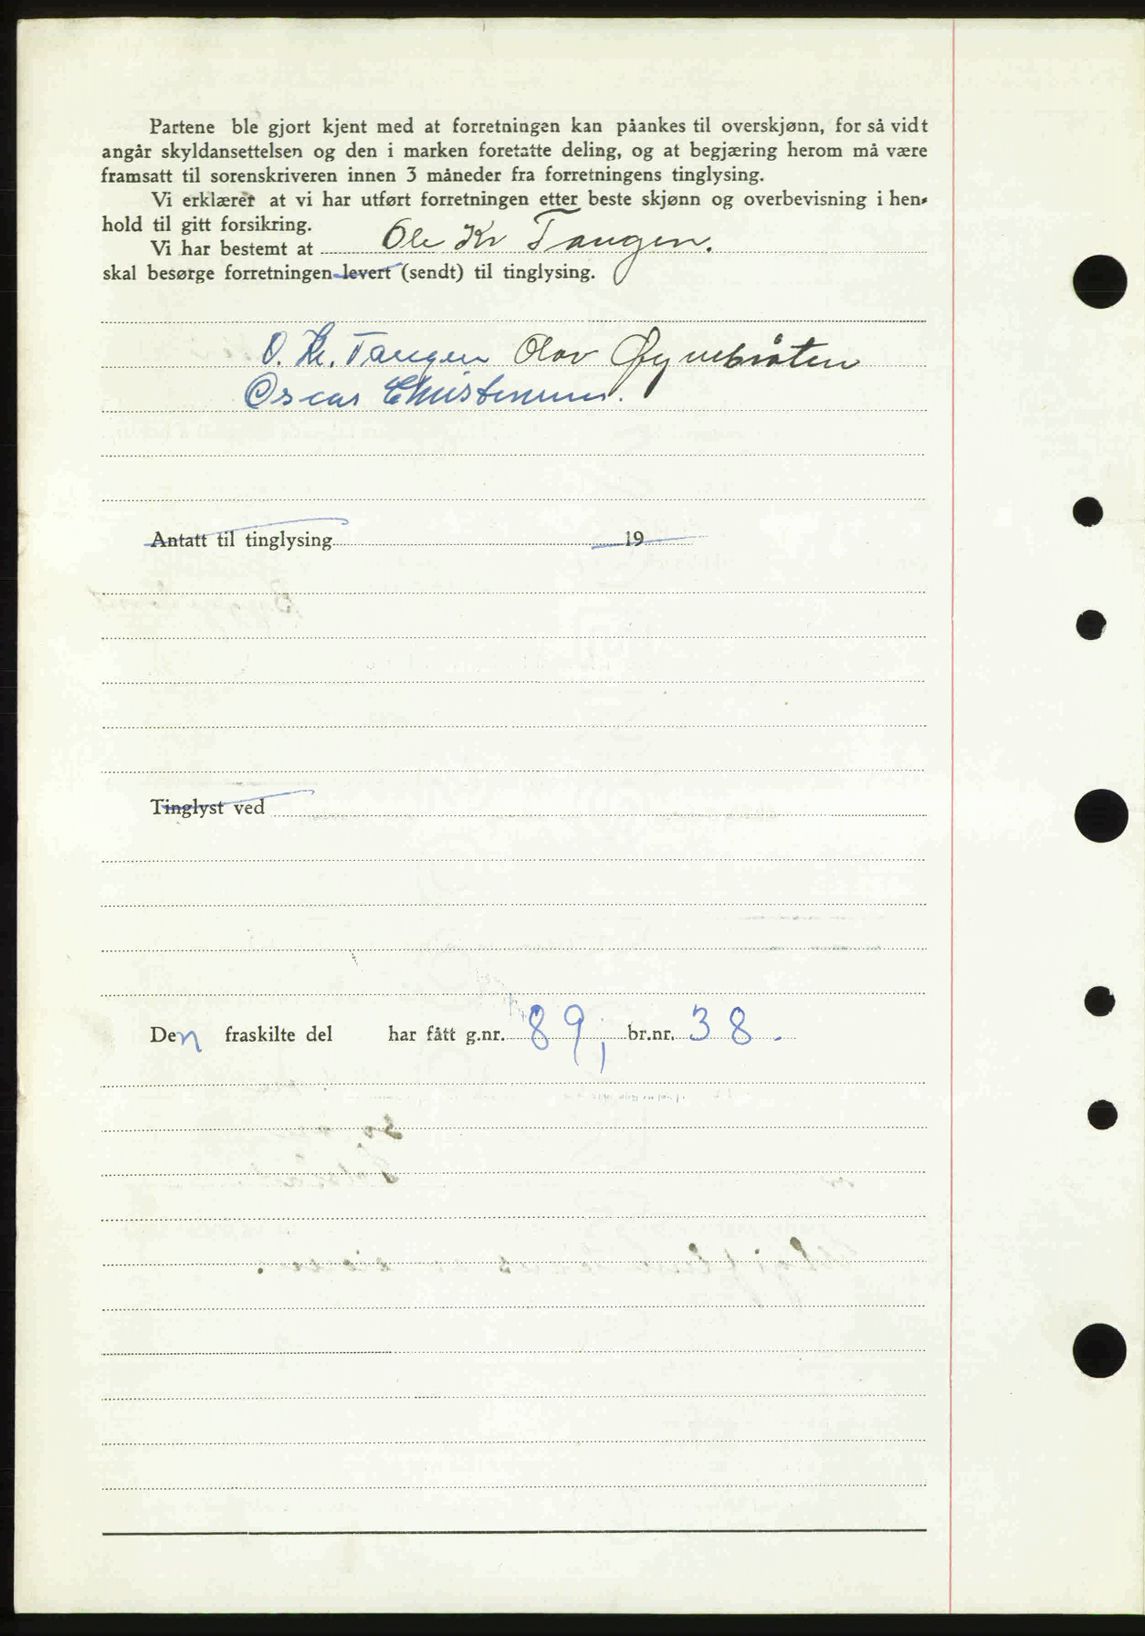 Partene ble gjort kjent med at forretningen kan påankes til overskjønn, for så vidt
angår skyldansettelsen og den i marken foretatte deling, og at begjæring herom må være
framsatt til sorenskriveren innen 3 måneder fra forretningens tinglysing.
Vi erklærer at vi har utført forretningen etter beste skjønn og overbevisning i hen-
hold til gitt forsikring.
Vi har bestemt at Ole Kr Tangen.
skal besørge forretningen levert (sendt) til tinglysing.
O. Kr. Tangen Olav Øynebråten
Oscar Christensen.
Antatt til tinglysing 19
Tinglyst ved
Den fraskilte del har fått g.nr. 89, br.nr. 38.